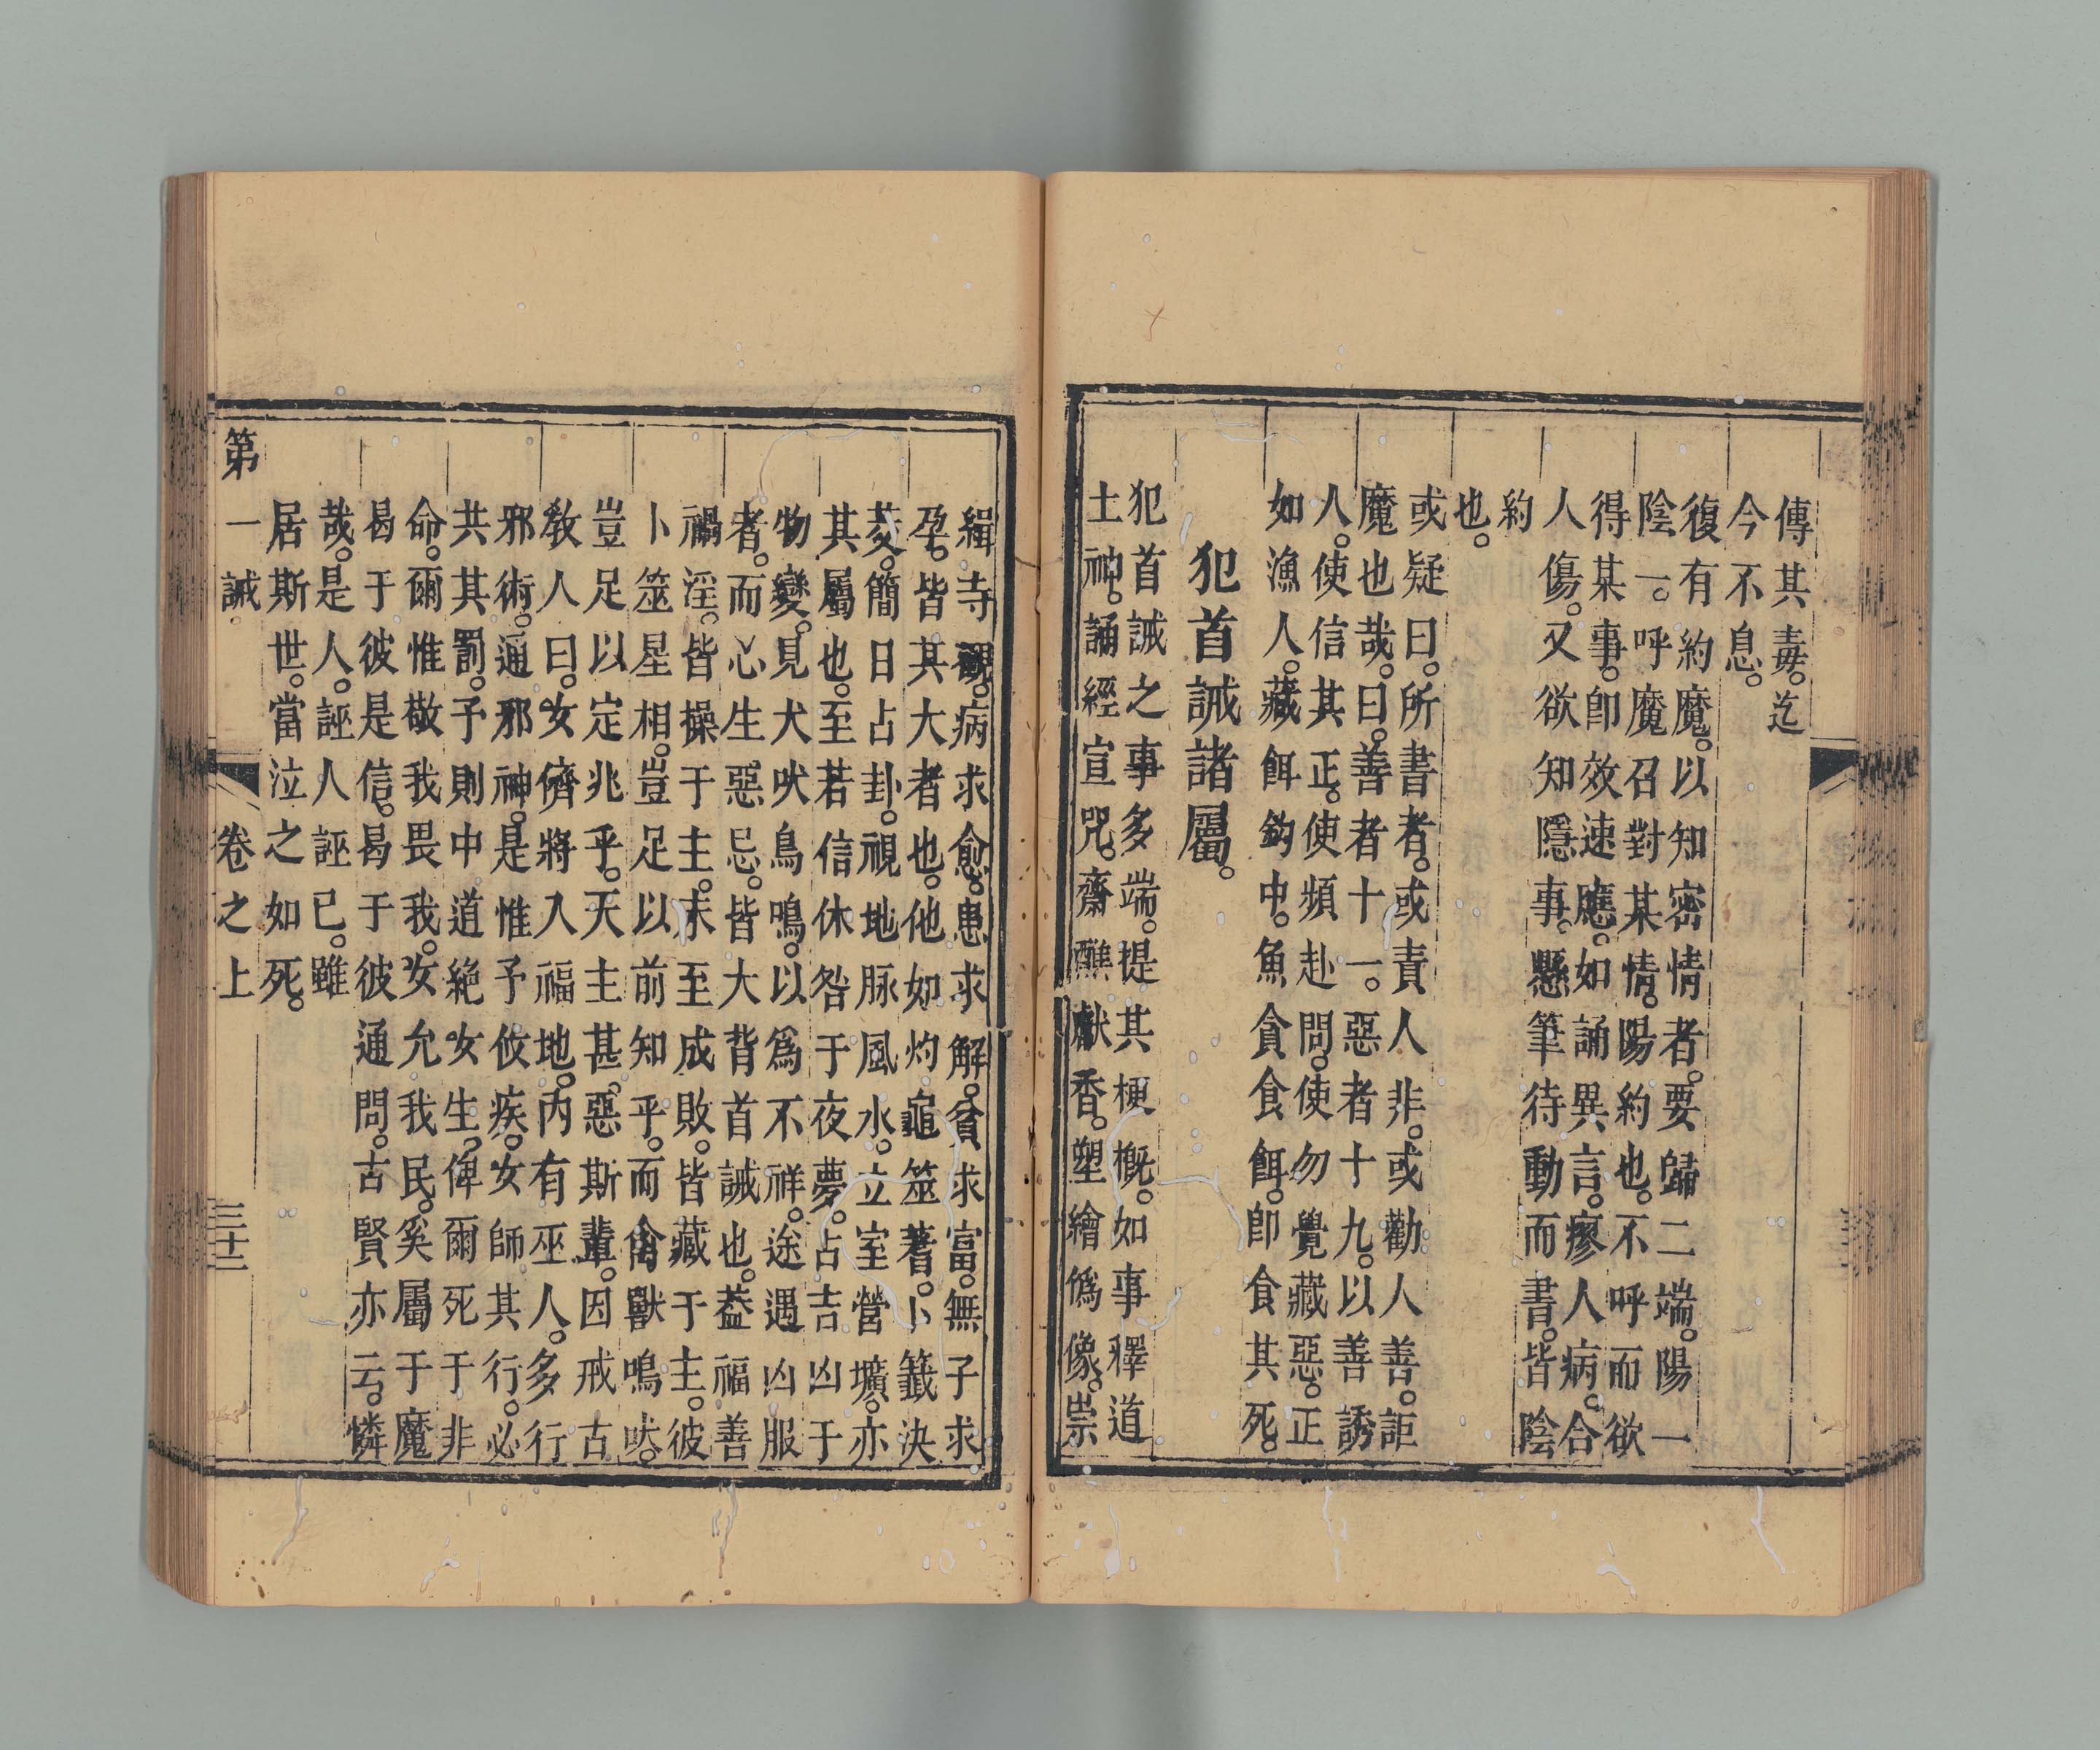 傳其毒。迄
今不息。
復有約魔。以知密情者。要歸二端。陽一
陰一。呼魔召對某情。陽約也。不呼而欲
得某事。卽效速應。如誦異言。瘳人病。合
人傷。又欲知隱事。懸筆待動而書。皆陰
約
也。
或疑曰。所書者。或責人非。或勸人善。詎
魔也哉。曰。善者十一。惡者十九。以善誘
人。使信其正。使頻赴問。使勿覺藏惡。正
如漁人。藏餌鈎中。魚貪食餌。卽食其死。
犯首誡諸屬。
犯首誡之事多端。提其梗概。如事釋道
土神。誦經宣咒。齋醮獻香。塑繪僞像。崇
緝寺觀。病求愈。患求解。貧求富。無子求
孕。皆其大者也。他如灼龜筮蓍。卜籤決
茭。簡日占卦。視地脉風水。立室營壙。亦
其屬也。至若信休咎于夜夢。占吉凶于
物變。見犬吠鳥鳴。以爲不祥。途遇凶服
者。而心生惡忌。皆大背首誡也。葢福善
禍淫。皆操于主。未至成敗。皆藏于主。彼
卜筮星相。豈足以前知乎。而禽獸鳴吠。
豈足以定兆乎。天主甚惡斯輩。因戒古
敎人曰。女儕將入福地。內有巫人。多行
邪術。通邪神。是惟予攸疾。女師其行。必
共其罰。予則中道絕女生。俾爾死于非
命。爾惟敬我畏我。女允我民。奚屬于魔
曷于彼是信。曷于彼通問。古賢亦云。憐
哉。是人。誣人誣已。雖
居斯世。當泣之如死。
第一誡 卷之上 三十二